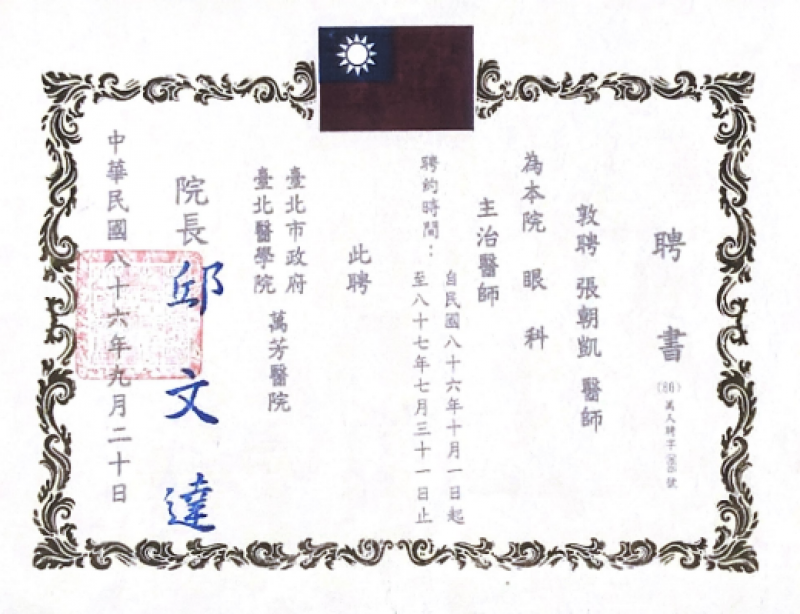 聘書
(86)萬人聘字 號
敦聘 張朝凱 醫師
為本院 眼科
主治醫師
聘約時間：自民國八十六年十月一日起
至八十七年七月三十一日止
此聘
臺北市政府
臺北醫學院
萬芳醫院
院長 邱文達
中華民國八十六年九月二十日